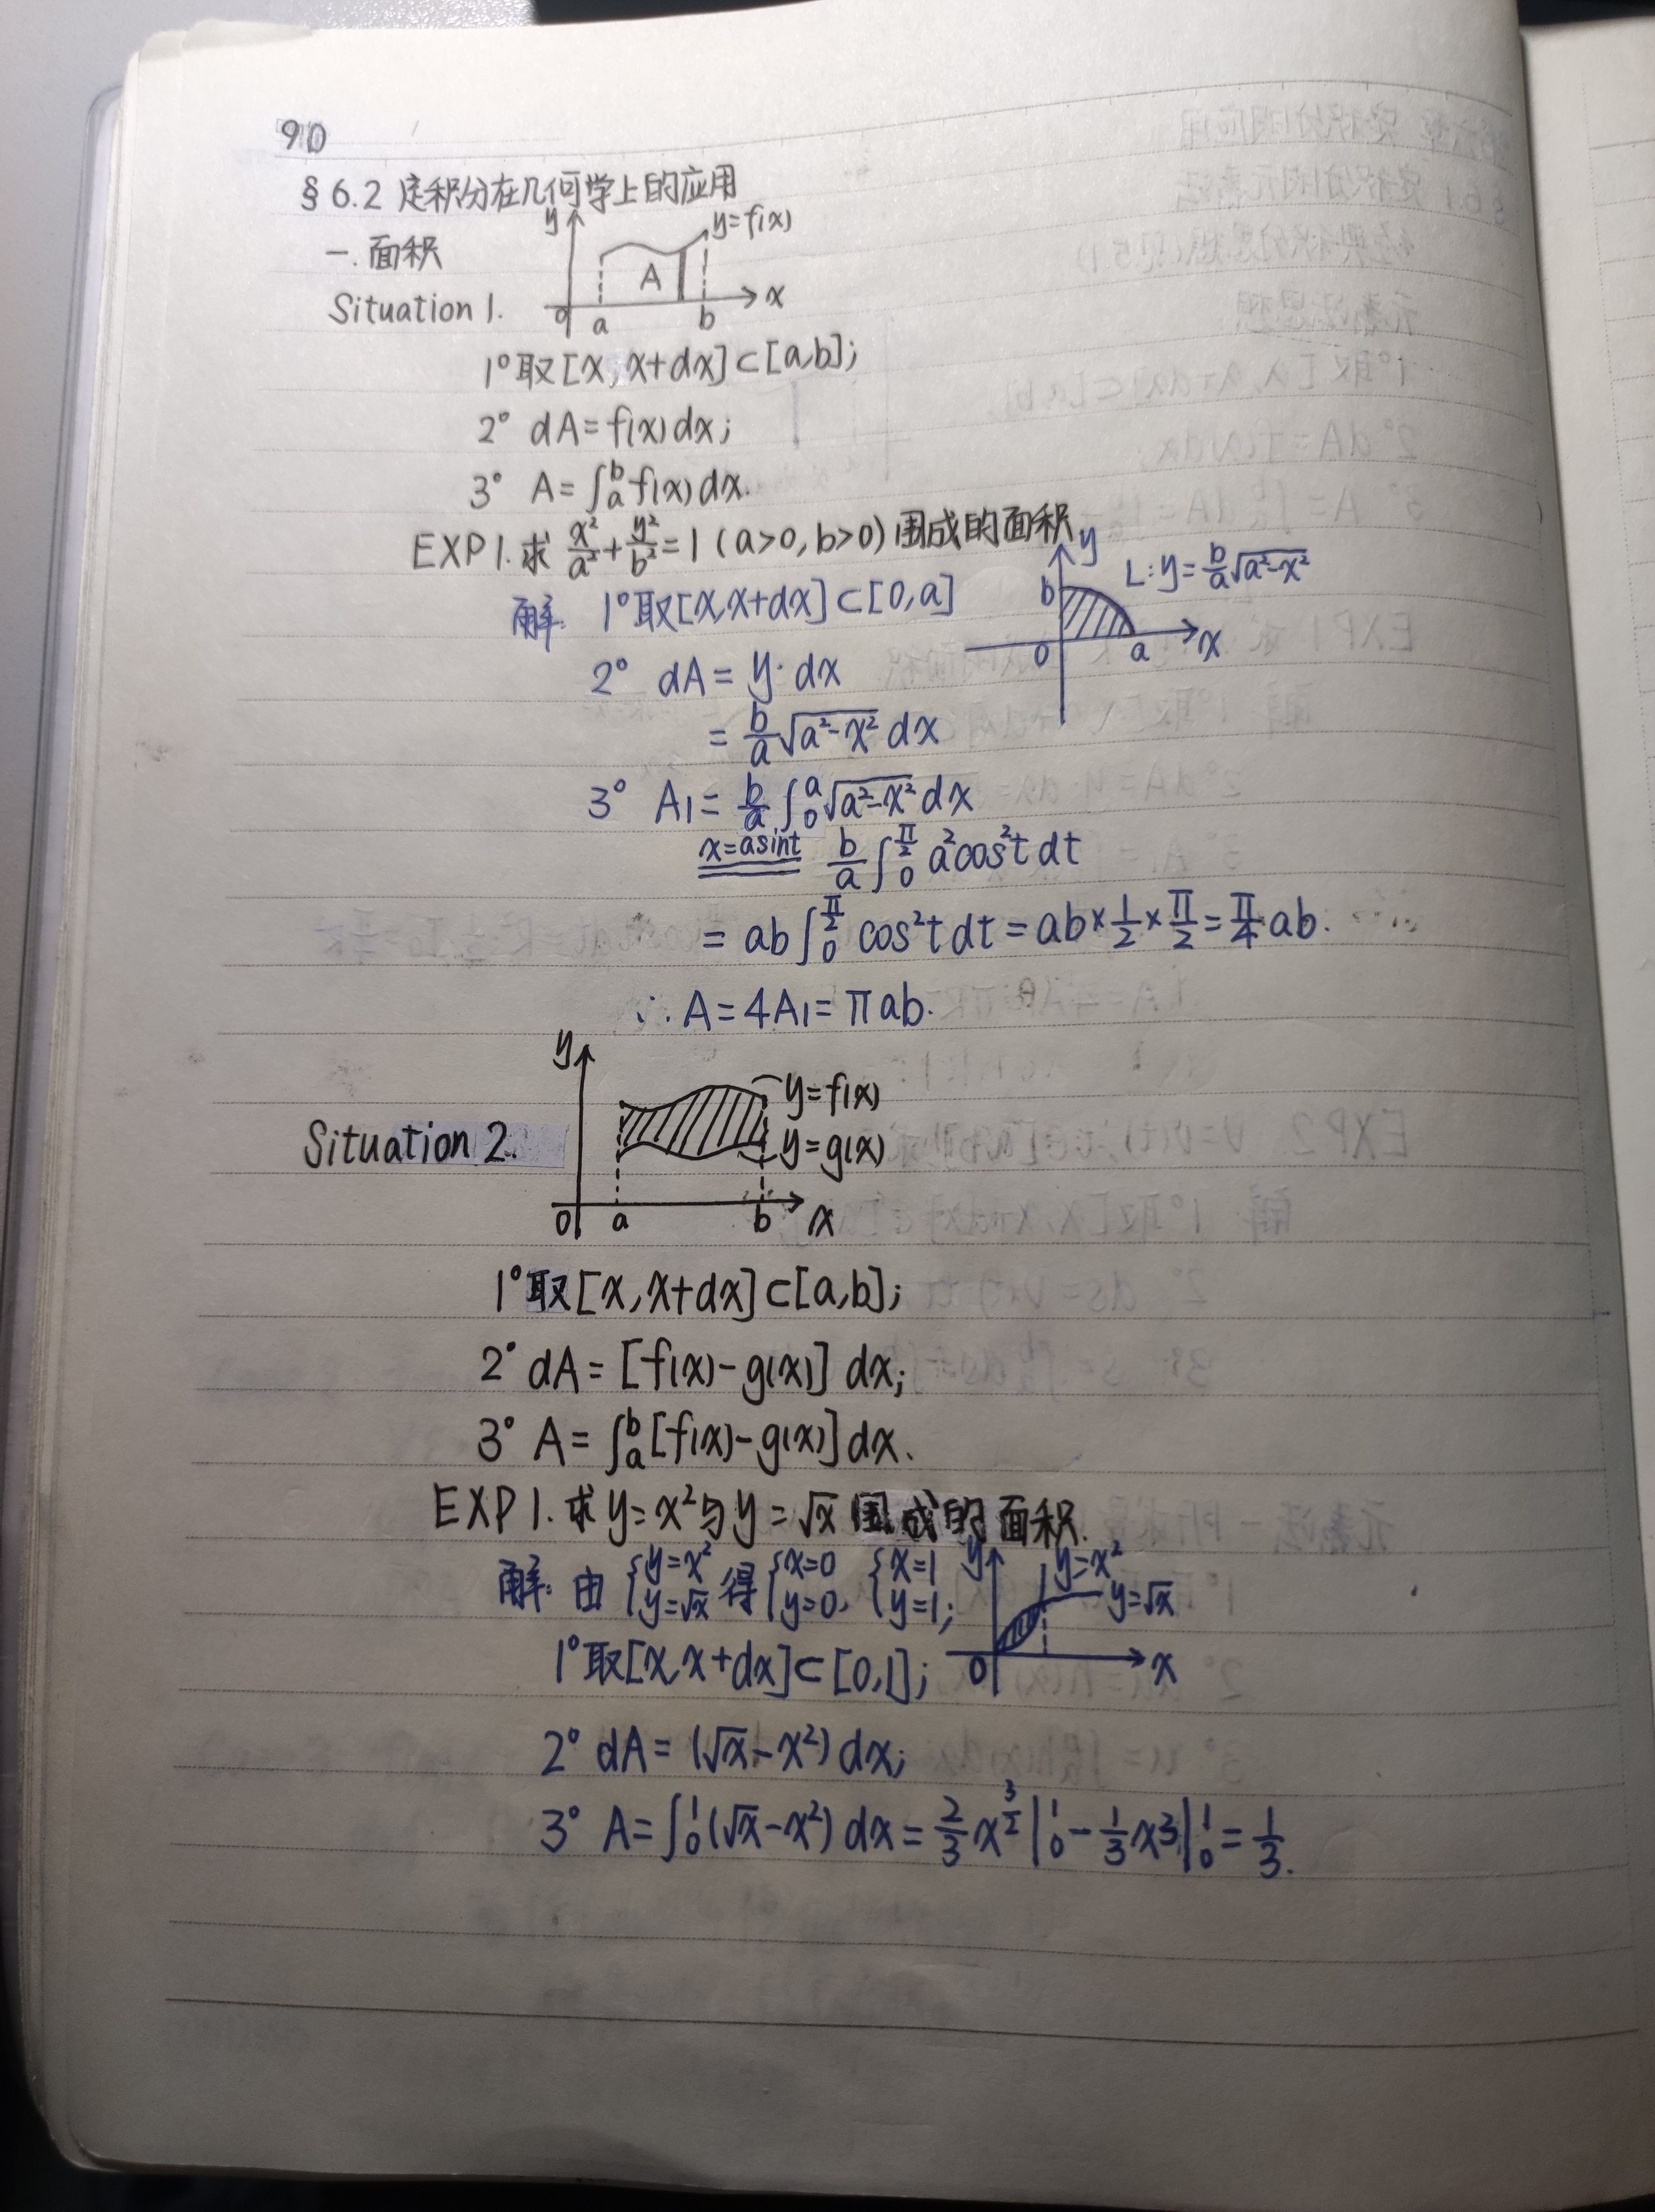 90
§6.2 定积分在几何学上的应用
一. 面积
y y=f(x)
A
Situation 1.
0 a b x
1° 取[x, x+dx]⊂[a,b];
2° dA=f(x)dx;
3° A=∫_a^b f(x)dx.
EXP1. 求 x²/a²+y²/b²=1 (a>0, b>0) 围成的面积
y b L: y=b/a √(a²-x²)
0 a x
解: 1° 取[x,x+dx]⊂[0,a]
2° dA=y·dx
=b/a √(a²-x²) dx
3° A₁=b/a ∫_0^a √(a²-x²) dx
x=asint b/a ∫_0^(π/2) a²cos²t dt
=ab∫_0^(π/2) cos²t dt=ab×1/2×π/2=π/4 ab.
∴ A=4A₁=πab.
y
y=f(x)
Situation 2. y=g(x)
0 a b x
1° 取[x, x+dx]⊂[a,b];
2° dA=[f(x)-g(x)] dx;
3° A=∫_a^b [f(x)-g(x)]dx.
EXP1. 求y=x²与y=√x 围成的面积.
解: 由{y=x² y=√x 得{x=0 y=0, {x=1 y=1;
y y=x²
y=√x
0 x
1° 取[x,x+dx]⊂[0,1];
2° dA=(√x-x²) dx;
3° A=∫_0^1 (√x-x²) dx=2/3 x^(3/2)|_0^1-1/3 x³|_0^1=1/3.